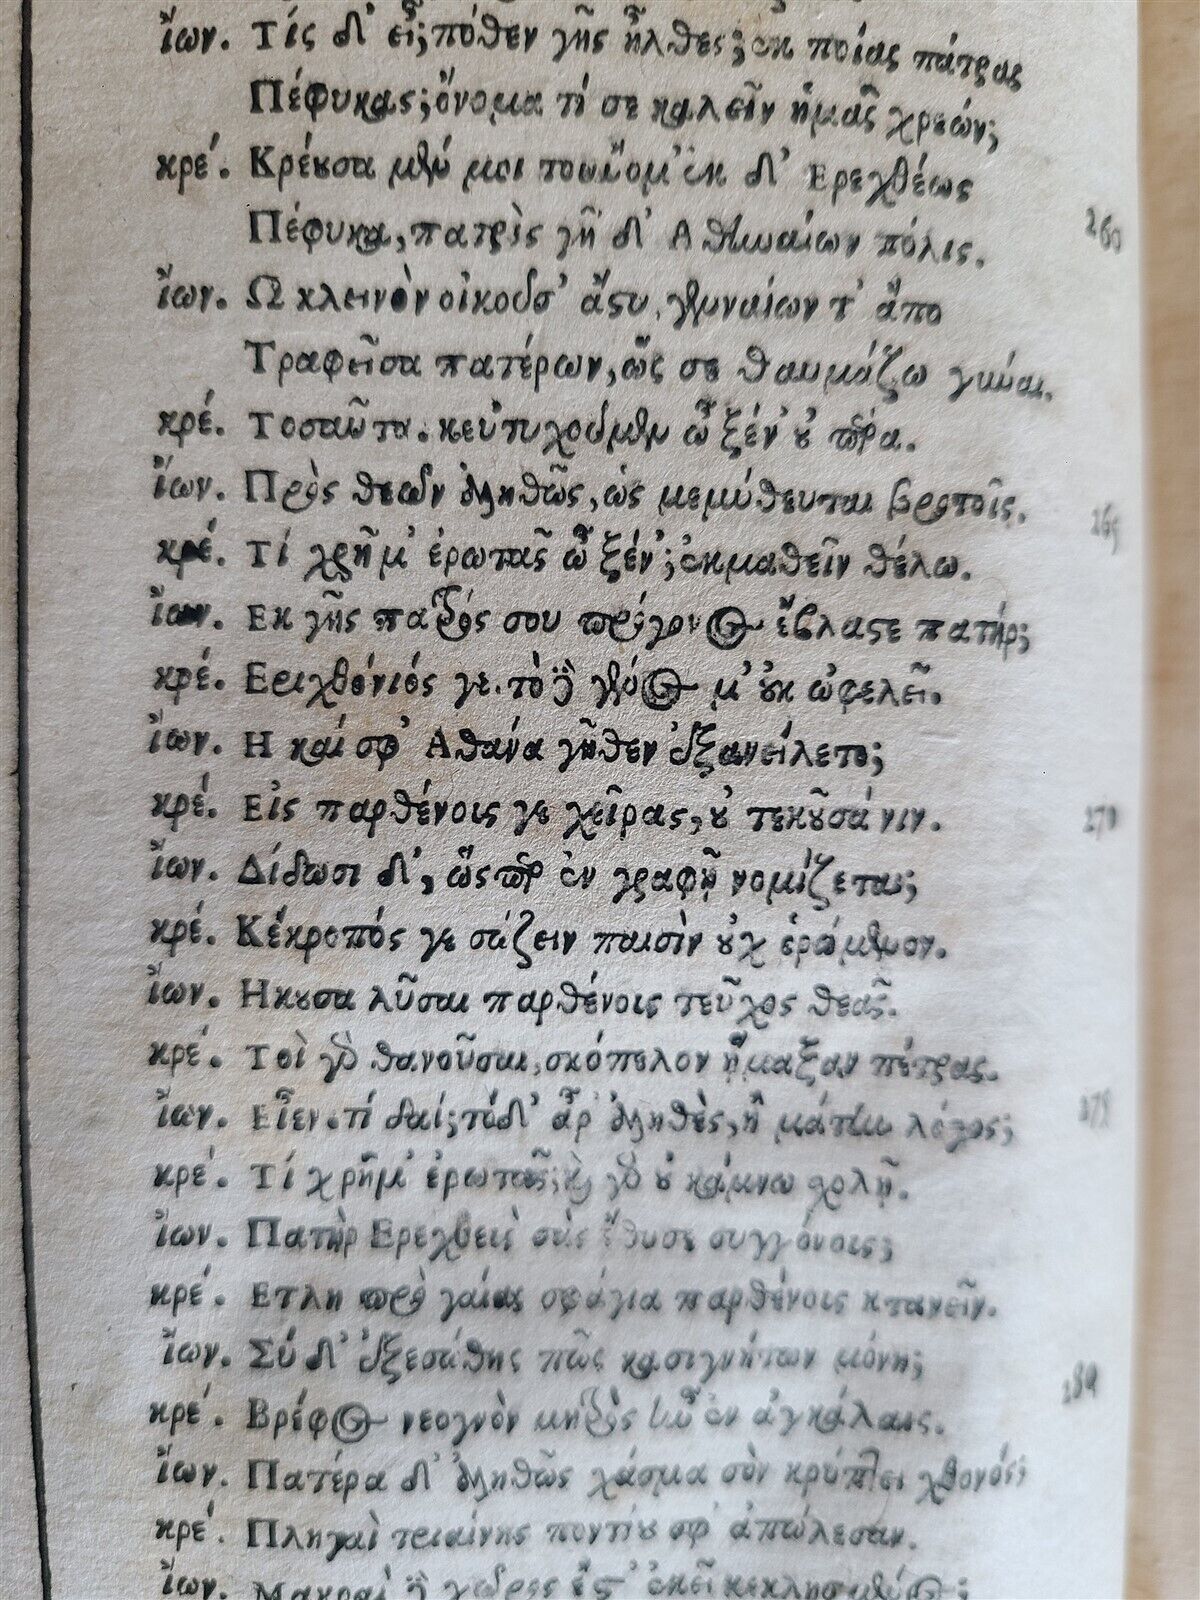 ἴων. Τίς δ' εἶ; πόθεν γῆς ἦλθες; ἐκ ποίας πάτρας
Πέφυκας; ὄνομα τί σε καλεῖν ἡμᾶς χρεών;
κρέ. Κρέουσα μέν μοι τοὔνομ' ἐκ δ' Ερεχθέως
Πέφυκα, πατρὶς γῆ δ' Αθηναίων πόλις. 260
ἴων. Ω κλεινὸν οἰκοῦσ' ἄστυ, γενναίων τ' ἄπο
Τραφεῖσα πατέρων, ὥς σε θαυμάζω γύναι.
κρέ. Τοσαῦτα κεὐτυχοῦμεν ὦ ξέν' οὐ πέρα.
ἴων. Πρὸς θεῶν ἀληθῶς, ὡς μεμύθευται βροτοῖς. 265
κρέ. Τί χρῆμ' ἐρωτᾶς ὦ ξέν'; ἐκμαθεῖν θέλω.
ἴων. Εκ γῆς πατρός σου πρόγονος ἔβλαστε πατήρ;
κρέ. Εριχθόνιός γε. τὸ δὲ γένος μ' οὐκ ὠφελεῖ.
ἴων. Η καί σφ' Αθάνα γῆθεν ἐξανείλετο;
κρέ. Εἰς παρθένοις γε χεῖρας, οὐ τεκοῦσά νιν. 270
ἴων. Δίδωσι δ', ὥσπερ ἐν γραφῇ νομίζεται;
κρέ. Κέκροπός γε σώζειν παισὶν οὐχ ὁρώμενον.
ἴων. Ηκουσα λῦσαι παρθένοις τεῦχος θεᾶς.
κρέ. Τοὶ γὰρ θανοῦσαι, σκόπελον ᾕμαξαν πέτρας.
ἴων. Εἶεν. τί δαί; τόδ' ἆρ' ἀληθὲς, ἢ μάτην λόγος; 275
κρέ. Τί χρῆμ' ἐρωτᾷς; καὶ γὰρ οὐ κάμνω σχολῇ.
ἴων. Πατὴρ Ερεχθεὺς σὰς ἔθυσε συγγόνους;
κρέ. Ετλη πρὸ γαίας σφάγια παρθένοις κτανεῖν.
ἴων. Σύ δ' ἐξεσώθης πῶς κασιγνήτων μόνη;
κρέ. Βρέφος νεογνὸν μητρὸς ἦν ἐν ἀγκάλαις. 280
ἴων. Πατέρα δ' ἀληθῶς χάσμα σὸν κρύπτει χθονός;
κρέ. Πληγαὶ τριαίνης ποντίου σφ' ἀπώλεσαν.
ἴων. Μακραὶ δὲ χῶρος ἔστ' ἐκεῖ κεκλημένος;